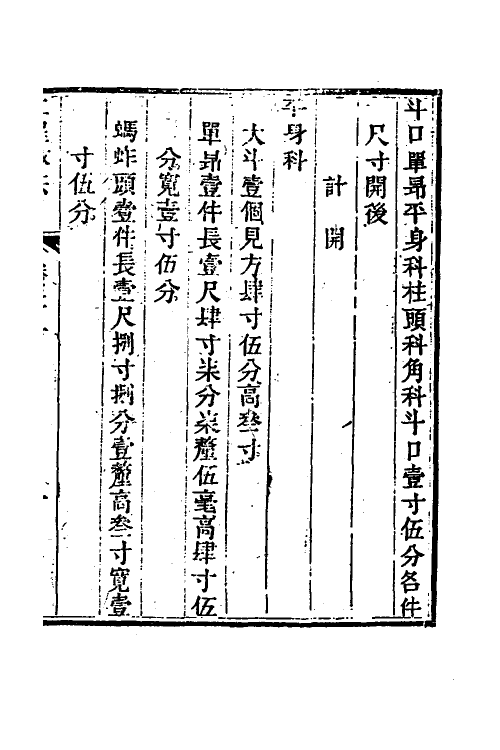 斗口單昻平身科柱頭科角科斗口壹寸伍分各件
尺寸開後
計開
平身科
大斗壹個見方肆寸伍分高叁寸
單昻壹件長壹尺肆寸柒分柒釐伍毫高肆寸伍
分寬壹寸伍分
螞蚱頭壹件長壹尺捌寸捌分壹釐高叁寸寬壹
寸伍分